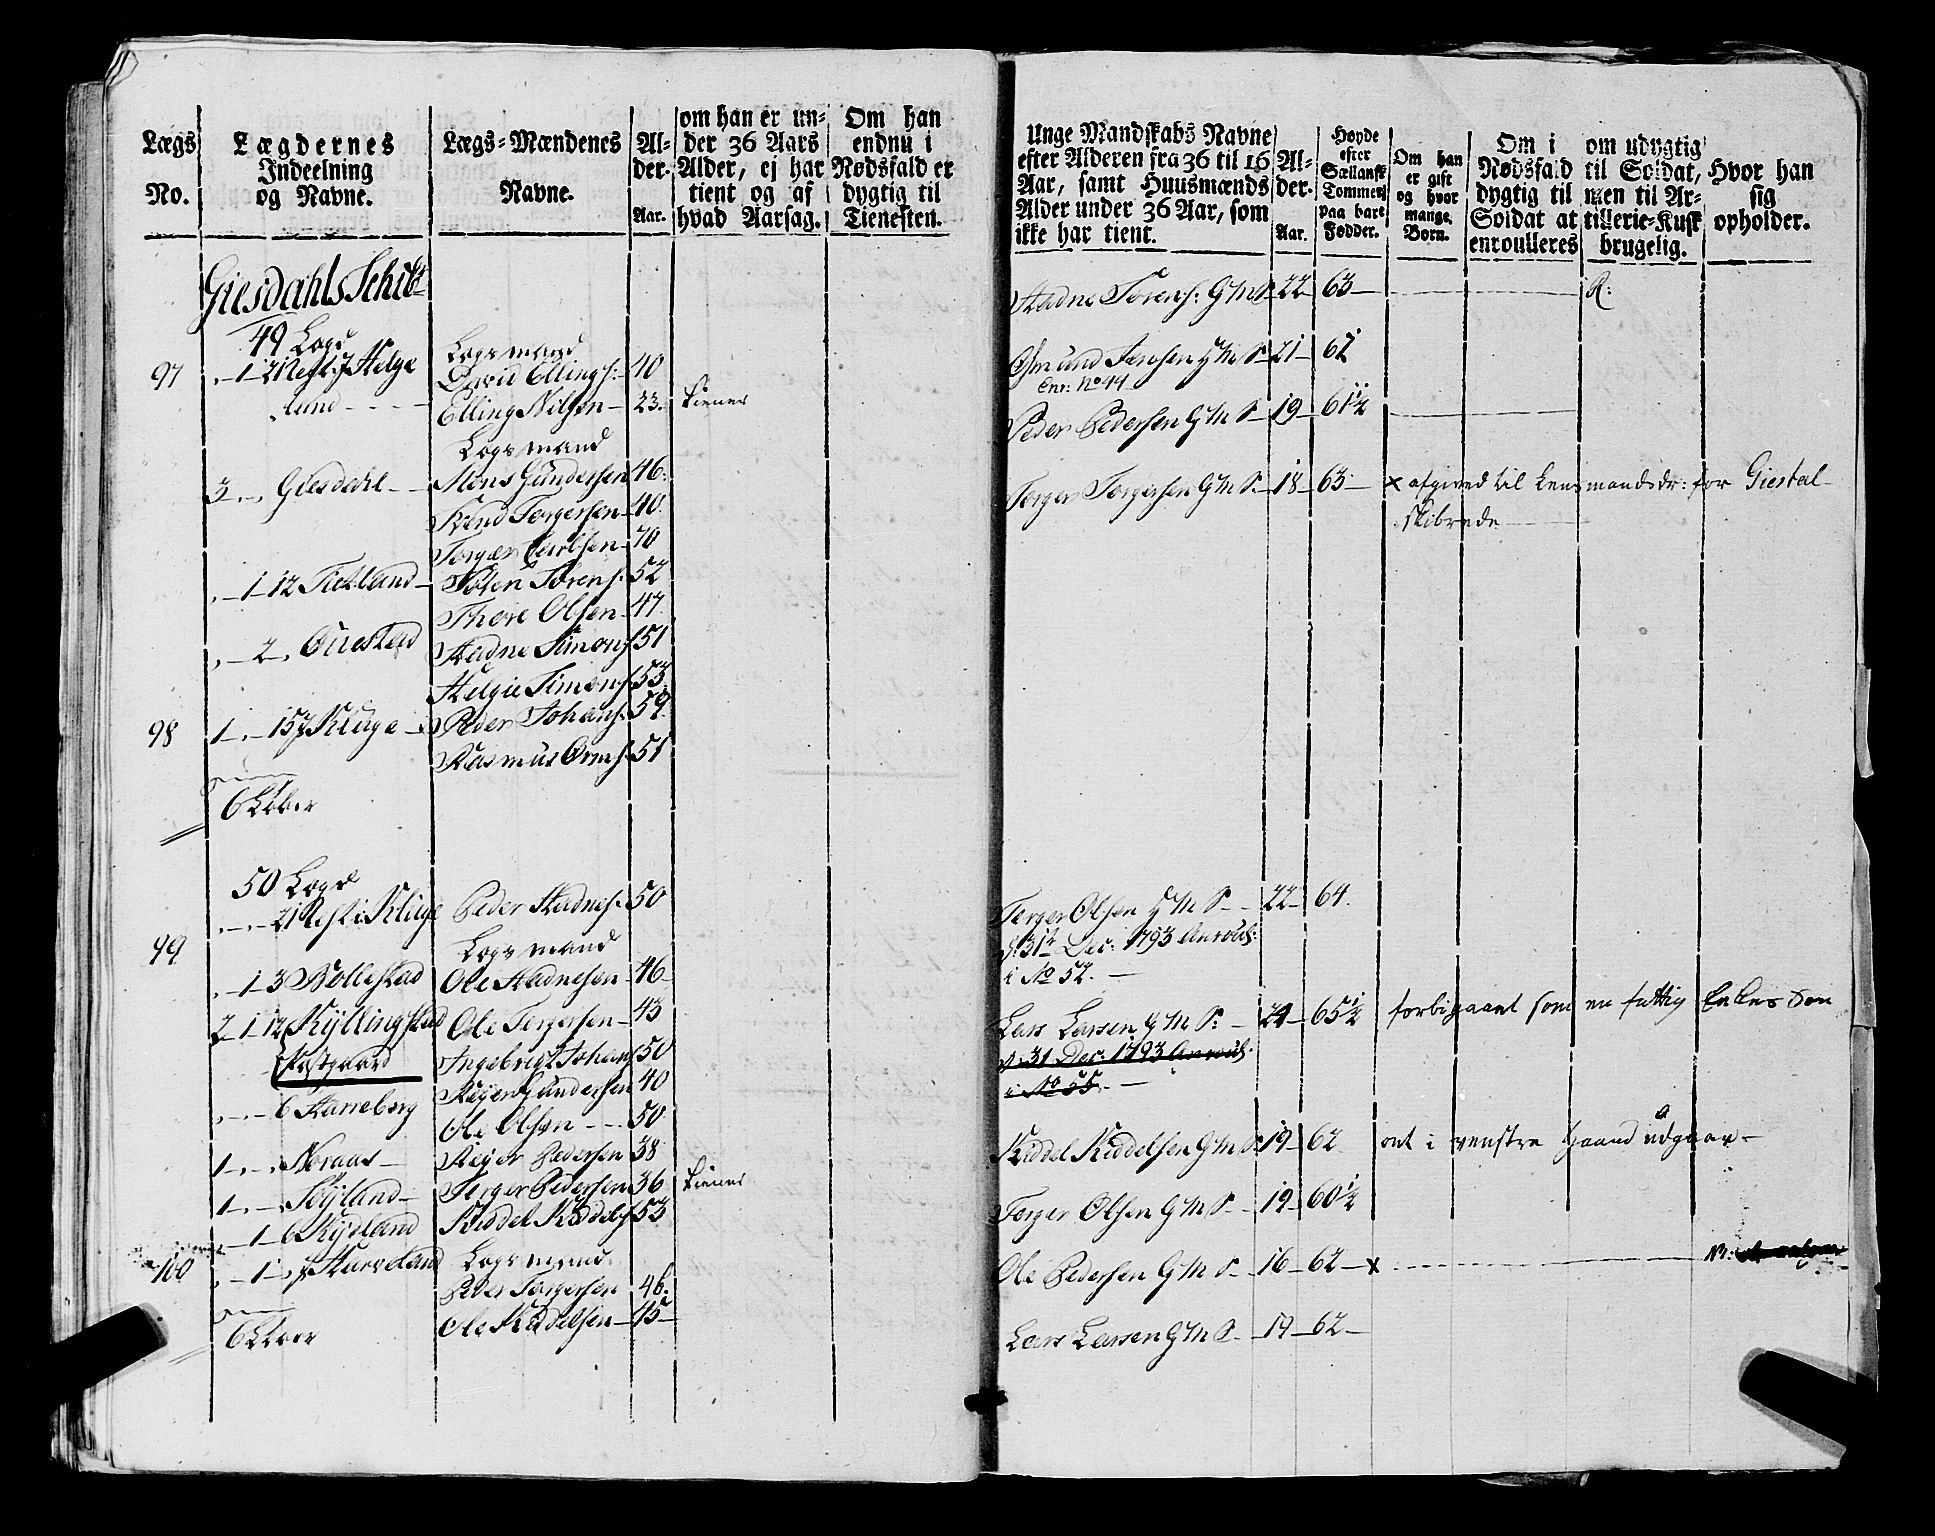 Lægs No.
Lægdernes Indeelning og Navne.
Lægs-Mændenes Navne.
Al-der. Aar.
om han er un-der 36 Aars Alder, ej har tient og af hvad Aarsag.
Om han endnu i Nødsfald er dygtig til Tienesten.
Giesdahls Schibr.
49 Lægd
Lægsmand
97 1 2 Rest i Helge David Ellings: 40
lund Elling Nilsen 23. tiener
Lægsmand
3 Giesdahl Mons Gundersen 46.
Svend Torgersen 40.
Torger 70
1 12 Tietland Soren Sorens. 52
Thore Olsen 47.
2 Auestad Aadne Simons. 51
Helgie Simons. 53.
98 1 15 i Kluge Peder Johans. 59.
Rasmus Orms. 51
6 Løber
50 Lægd
2 Rest i Kluge Peder Aadnes. 50
99 Lægsmand
1 3 Bollestad Ole Aadnesen 46
2 1 12 Kyllingstad Ole Torgersen 43
Nastgaard Ingebrigt Johans 50
Reyer Gundersen 40
6 Harreberg
Ole Olsen 50
1 Noraas Reyer Pedersen 38
1 Søyland Torger Pedersen 36 tiener
1 6 Kydland Kiddel Kiddels 53
100 1 Hurveland Lægsmand
Peder Torgersen 46.
6 Løber Ole Kiddelsen 45
Unge Mandskabs Navne efter Alderen fra 36 til 16 Aar, samt Huusmænds Alder under 36 Aar, som ikke har tient.
Al-der. Aar.
Høyde efter Sællansk Tommer paa bare Fødder.
Om han er gift og hvor mange Børn.
Om i Nødsfald dygtig til Soldat at enroulleres
om udygtig til Soldat, men til Ar-tillerie-Kusk brugelig.
Hvor han sig opholder.
Aadne Sorens: G M S 22 63 R:
Osmund Jensen G M S 21 62
Enr: No 44
Peder Pedersen G M S 19 61½
Torger Torgersen G M S. 18 63 x afgived til Lensmandsdr: for Giestal
skibrede
Torger Olsen G M S 22 64.
d: 31te Dec: 1793 Anroul:
i No 52.
Lars Larsen G M S: 24 65½ forbigaaet som en fattig Enkes Søn
d: 31 Dec: 1793 Anroul.
i No 55.
Kiddel Kiddelsen G M S 19 62 ont i venstre Haand udgaar
Torger Olsen G M S 19 60½
Ole Pedersen G M S 16 62 x
Lars Larsen G M S 19 62